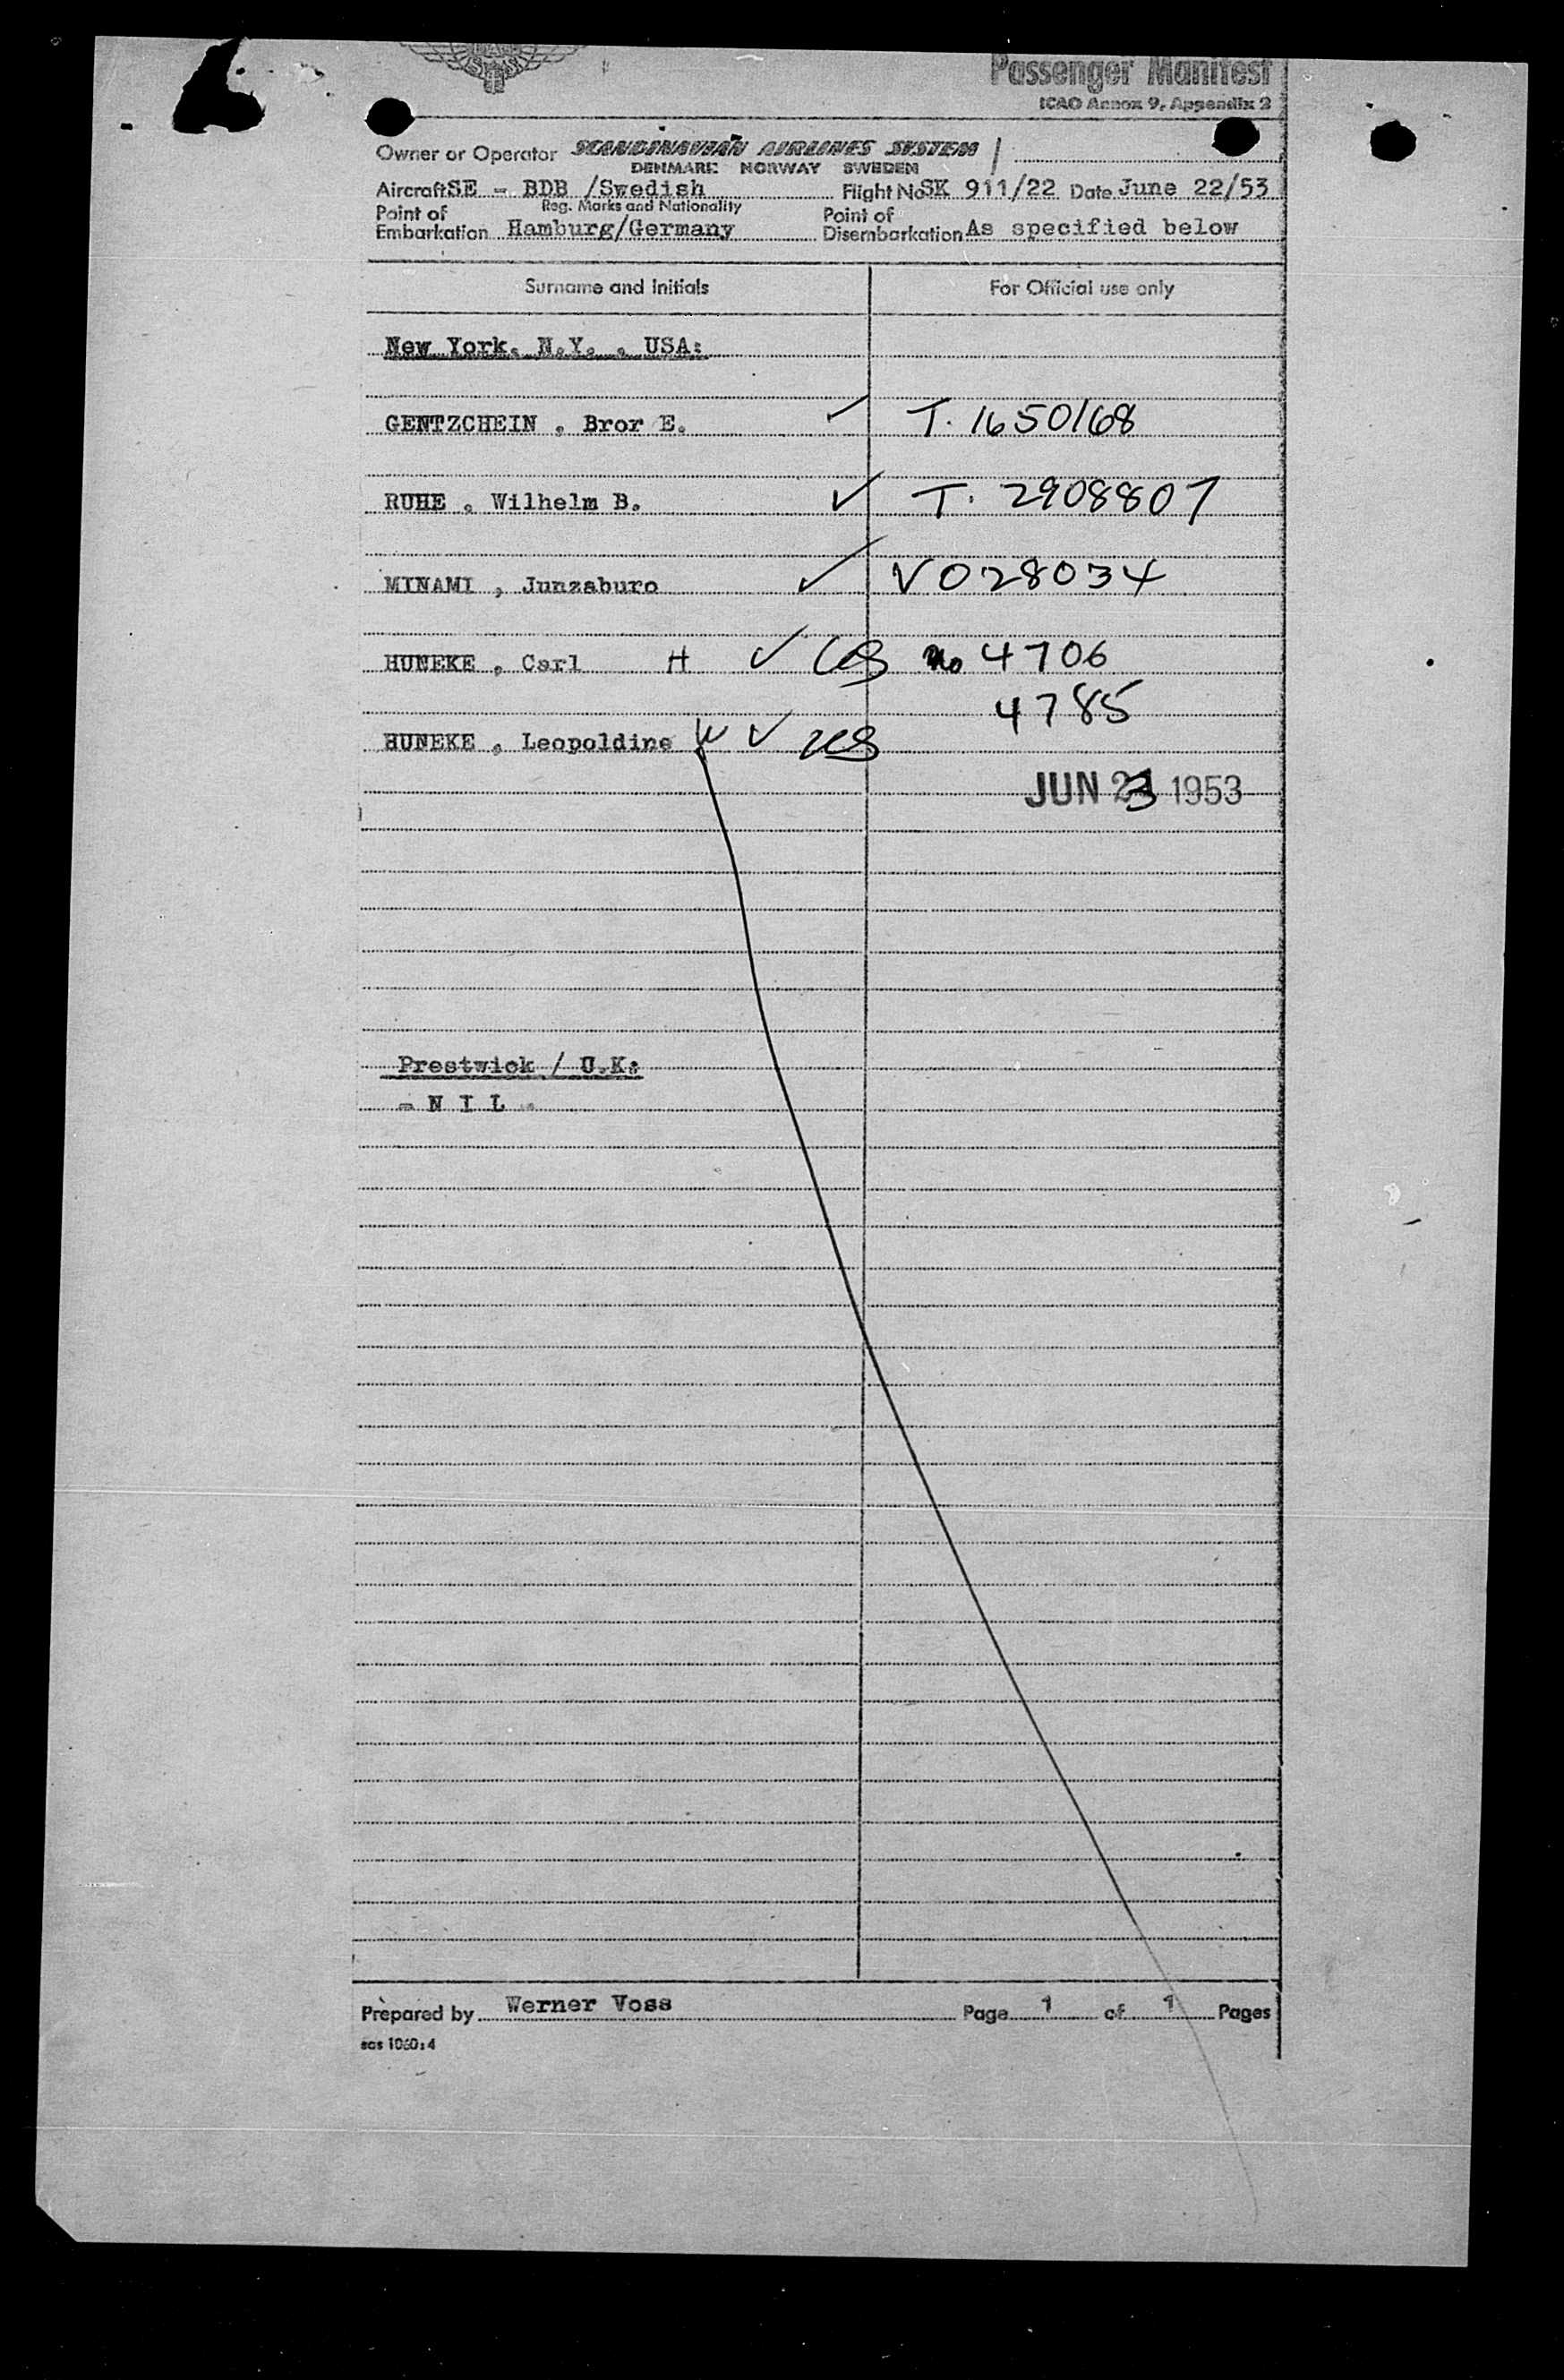 Passenger Manifest
ICAO Annex 9, Appendix 2
Owner or Operator SCANDINAVIAN AIRLINES SYSTEM
DENMARK NORWAY SWEDEN
Aircraft SE - BDB /Swedish Flight No SK 911/22 Date June 22/53
Reg. Marks and Nationality
Point of Embarkation Hamburg/Germany Point of Disembarkation As specified below
Surname and Initials For Official use only
New York. N.Y. , USA:
GENTZCHEIN , Bror E. ✓ T. 1650168
RUHE , Wilhelm B. ✓ T. 2908807
MINAMI , Junzaburo ✓ V028034
HUNEKE , Carl H ✓ No 4706
4785
HUNEKE , Leopoldine W ✓ US
JUN 23 1953
Prestwick / U.K:
- N I L -
Prepared by Werner Voss Page 1 of 1 Pages
sas 1060:4